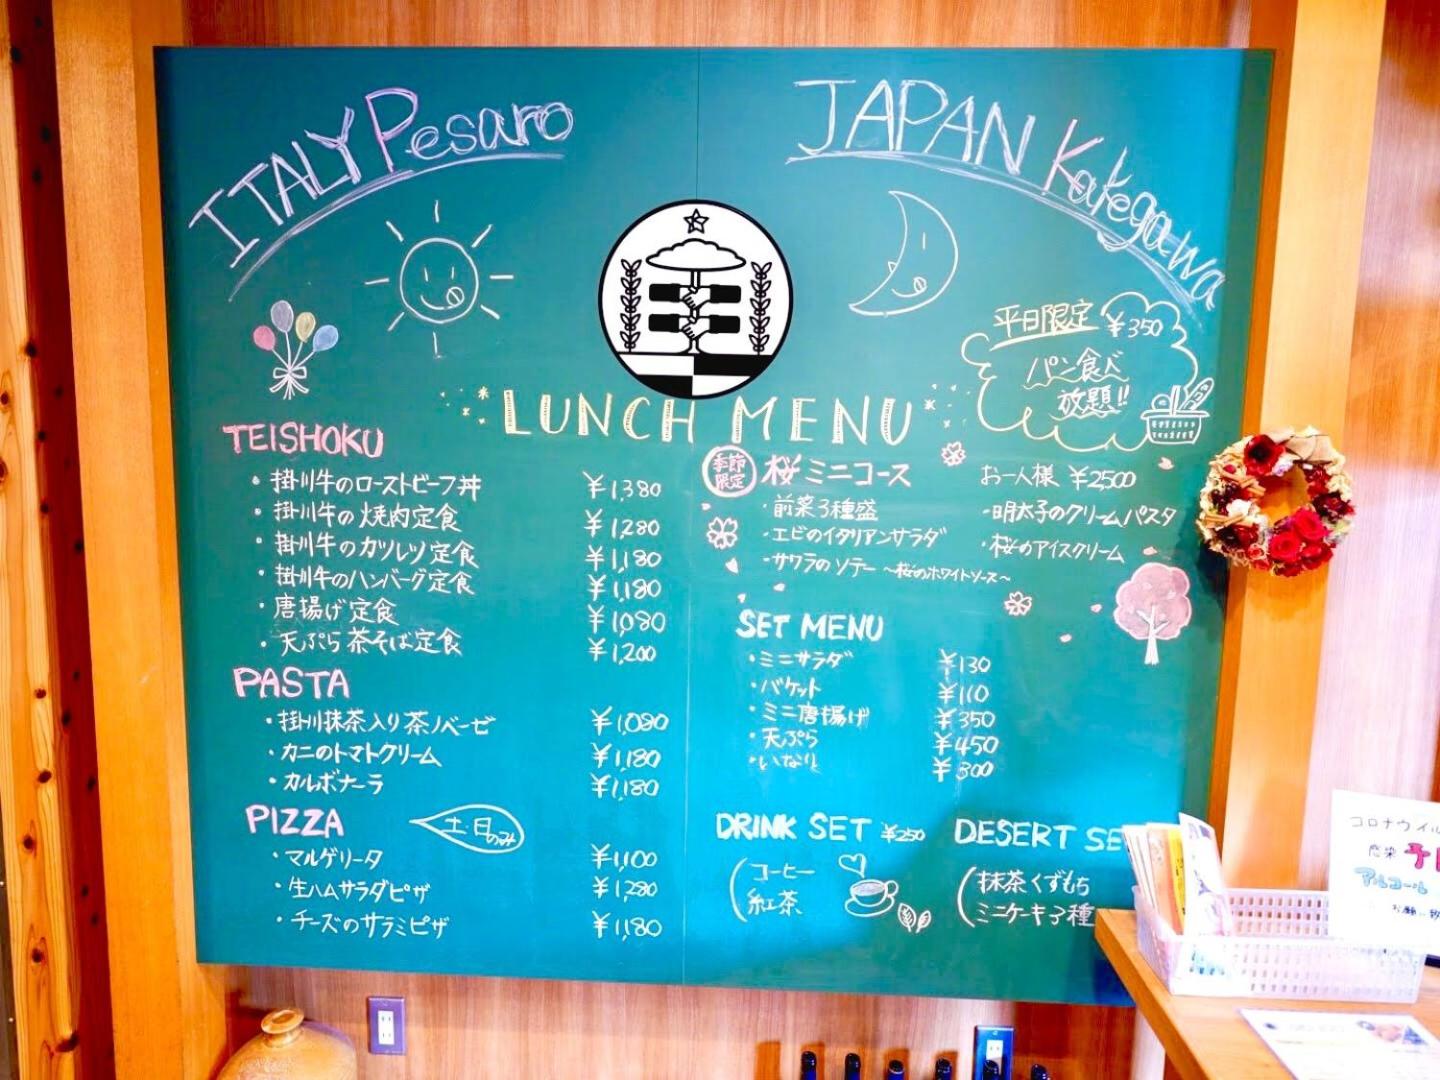 ITALY Pesaro
JAPAN Kakegawa
平日限定 ¥350
パン食べ
放題!!
LUNCH MENU
TEISHOKU
・掛川牛のローストビーフ丼 ¥1,380
・掛川牛の焼肉定食 ¥1,280
・掛川牛のカツレツ定食 ¥1,180
・掛川牛のハンバーグ定食 ¥1,180
・唐揚げ定食 ¥1,080
・天ぷら茶そば定食 ¥1,200
PASTA
・掛川抹茶入り茶ノベーゼ ¥1,080
・カニのトマトクリーム ¥1,180
・カルボナーラ ¥1,180
PIZZA 土・日のみ
・マルゲリータ ¥1,100
・生ハムサラダピザ ¥1,280
・チーズのサラミピザ ¥1,180
季節
限定
桜ミニコース お一人様 ¥2500
・前菜3種盛 ・明太子のクリームパスタ
・エビのイタリアンサラダ ・桜のアイスクリーム
・サワラのソテー ～桜のホワイトソース～
SET MENU
・ミニサラダ ¥130
・バケット ¥110
・ミニ唐揚げ ¥350
・天ぷら ¥450
・いなり ¥300
DRINK SET ¥250
コーヒー
紅茶
DESERT SE
抹茶くずもち
ミニケーキ3種
コロナウイル
感染 予
アルコール
お願い致